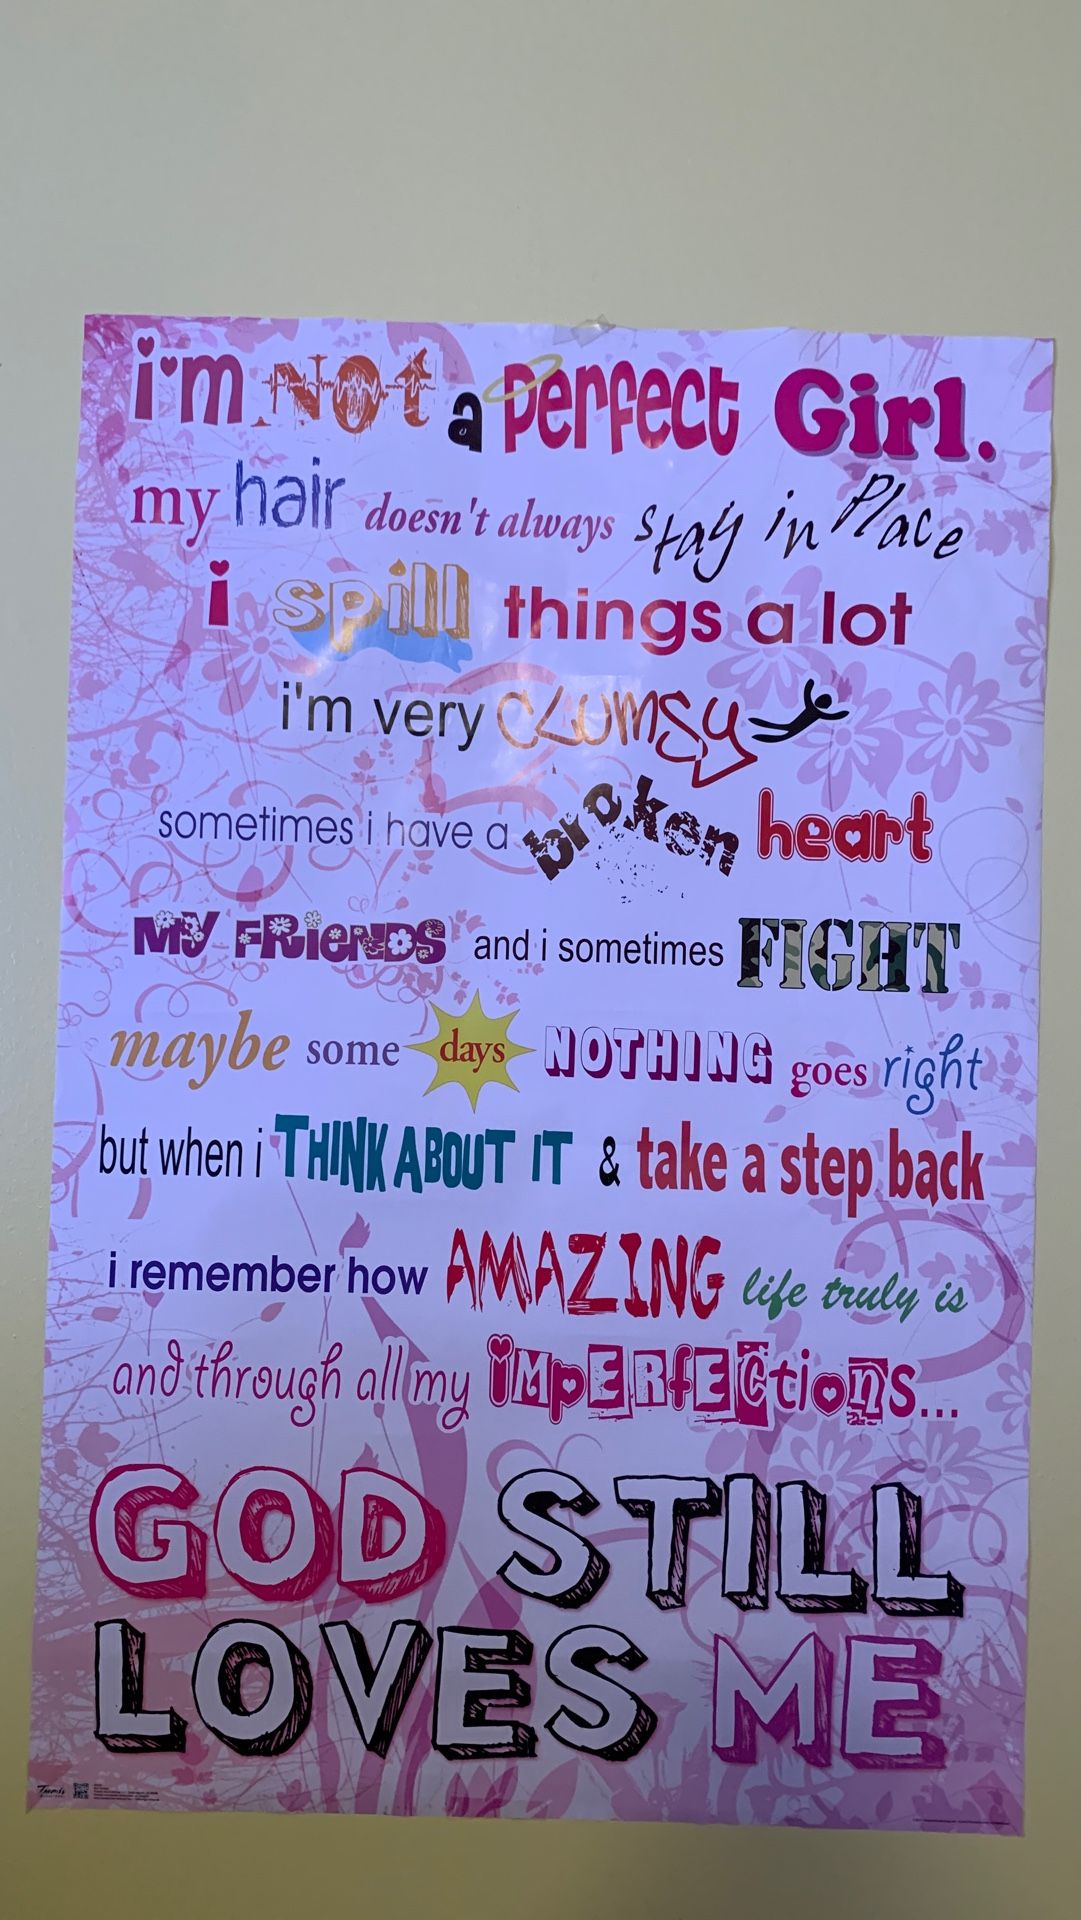 i'm NOt a perfect Girl.
my hair doesn't always stay in Place
i spill things a lot
i'm very CLUMSy
sometimes i have a broken heart
MY FRiENDS and i sometimes FIGHT
maybe some days NOTHING goes right
but when i THINK ABOUT IT & take a step back
i remember how AMAZING life truly is
and through all my iMpERfECtions...
GOD STILL
LOVES ME